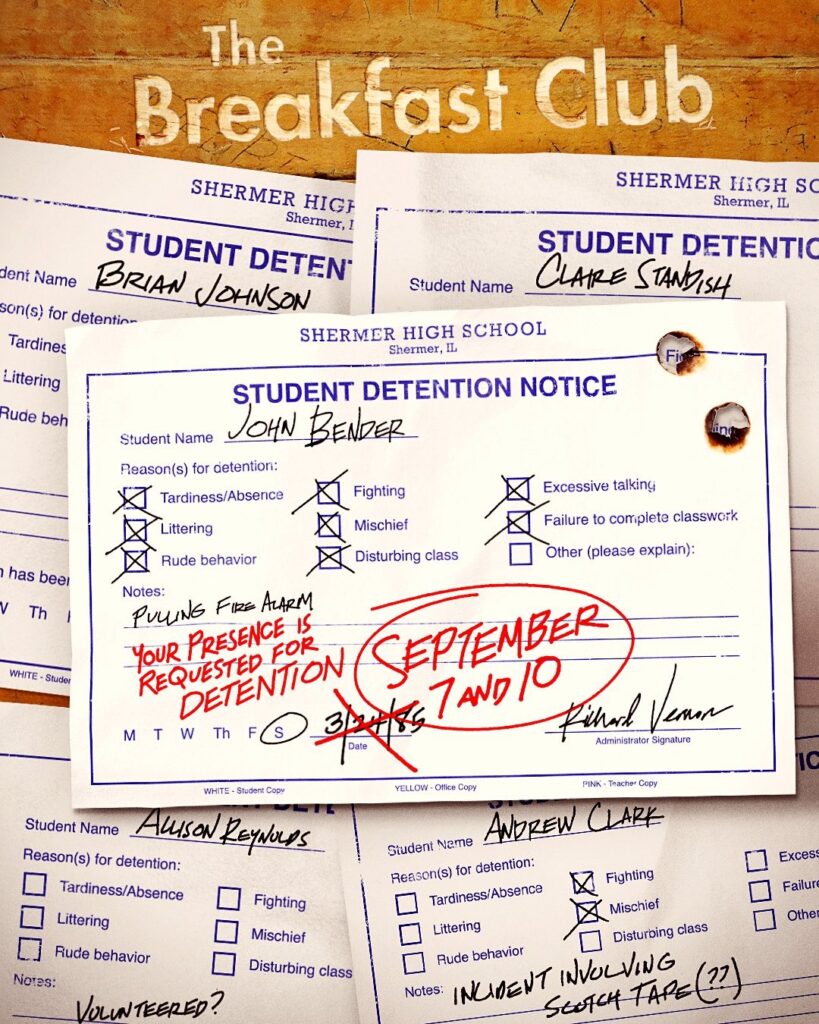 The
Breakfast Club
SHERMER HIGH
Shermer, I
STUDENT DETEN
dent Name BRIAN JOHNSON
son(s) for detention
Tardines
Littering
Rude beh
n has been
W Th F
WHITE - Studen
SHERMER HIGH SC
Shermer, IL
STUDENT DETENTIO
Student Name CLAIRE STANDISH
SHERMER HIGH SCHOOL
Shermer, IL
STUDENT DETENTION NOTICE
Student Name JOHN BENDER
Reason(s) for detention:
Tardiness/Absence Fighting Excessive talking
Littering Mischief Failure to complete classwork
Rude behavior Disturbing class Other (please explain):
Notes:
PULLING FIRE ALARM
YOUR PRESENCE IS
REQUESTED FOR
DETENTION
SEPTEMBER
7 AND 10
M T W Th F S 3/24/85 Richard Vernon
Date Administrator Signature
WHITE - Student Copy YELLOW - Office Copy PINK - Teacher Copy
Student Name ALLISON REYNOLDS
Reason(s) for detention:
Tardiness/Absence Fighting
Littering Mischief
Rude behavior Disturbing class
Notes:
VOLUNTEERED?
Student Name ANDREW CLARK
Reason(s) for detention:
Tardiness/Absence Fighting Excess
Littering Mischief Failure
Rude behavior Disturbing class Other
Notes: INCIDENT INVOLVING
SCOTCH TAPE (??)